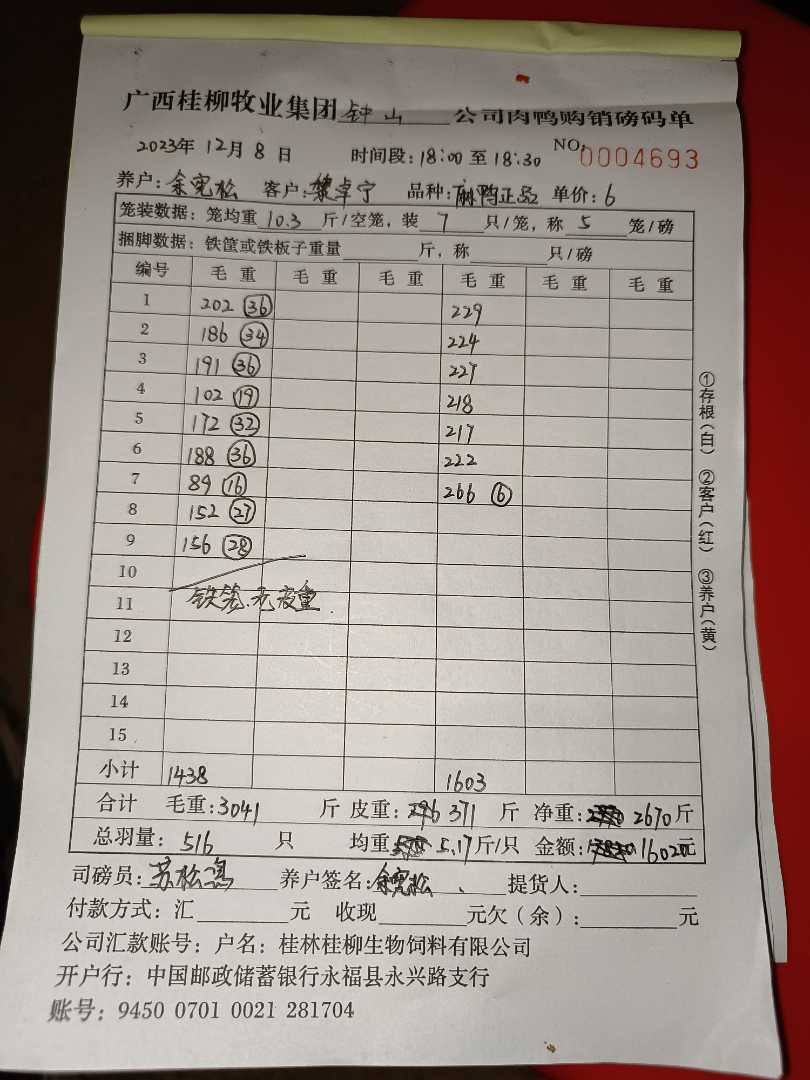 广西桂柳牧业集团钟山公司肉鸭购销磅码单
2023年12月8日 时间段:18:00至18:30 NO:0004693
养户:余宪松 客户:黎卓宁 品种:麻鸭正品 单价:6
笼装数据:笼均重10.3斤/空笼,装7只/笼,称5笼/磅
捆脚数据:铁筐或铁板子重量 斤,称 只/磅
编号 毛重 毛重 毛重 毛重 毛重 毛重
1 202 36 229
2 186 34 224
3 191 36 227
4 102 19 218
5 172 32 217
6 188 36 222
7 89 16 266 6
8 152 27
9 156 28
10
11 铁笼.无皮重
12
13
14
15
小计 1438 1603
合计 毛重:3041斤 皮重:371斤 净重:2670斤
总羽量:516只 均重5.17斤/只 金额:16020元
司磅员:苏松 养户签名:余宪松、 提货人:
付款方式:汇 元 收现 元欠(余): 元
公司汇款账号:户名:桂林桂柳生物饲料有限公司
开户行:中国邮政储蓄银行永福县永兴路支行
账号:9450 0701 0021 281704
①存根(白) ②客户(红) ③养户(黄)